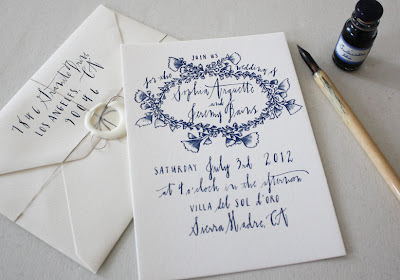 JOIN US
for the wedding of
Sophia Arquette
and
Jeremy Davis
SATURDAY July 3rd 2012
at 4 o'clock in the afternoon
VILLA del SOL d'ORO
Sierra Madre, CA
1546
LOS ANGELES, CA
90046